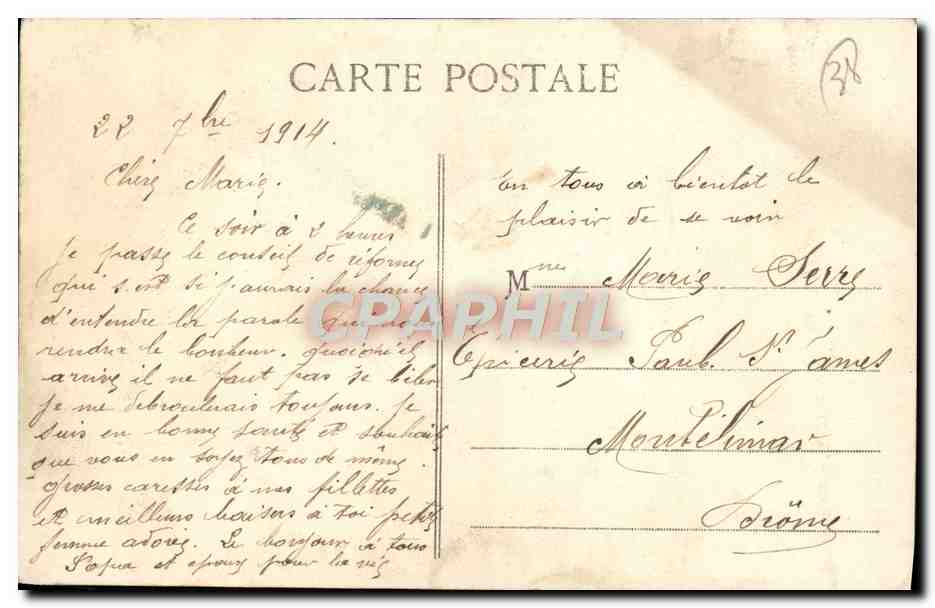 CARTE POSTALE
38
22 7bre 1914.
Chère Marie.
Ce soir à 2 heures
je passe le conseil de réforme
qui sait si j'aurais la chance
d'entendre la parole qui nous
rendra le bonheur. Quoiqu'il
arrive il ne faut pas se biler
je me debrouilerais toujours. Je
suis en bonne santé et souhaite
que vous en soyez tous de même.
Grosses caresses à nos fillettes
et meilleurs baisers à toi petite
femme adorée. Le bonjour à tous
Papa et epoux pour la vie
En tous à bientot le
plaisir de se voir
Mme Marie Serre
Epicerie Faub. St James
Montélimar
Drôme
CPAPHIL